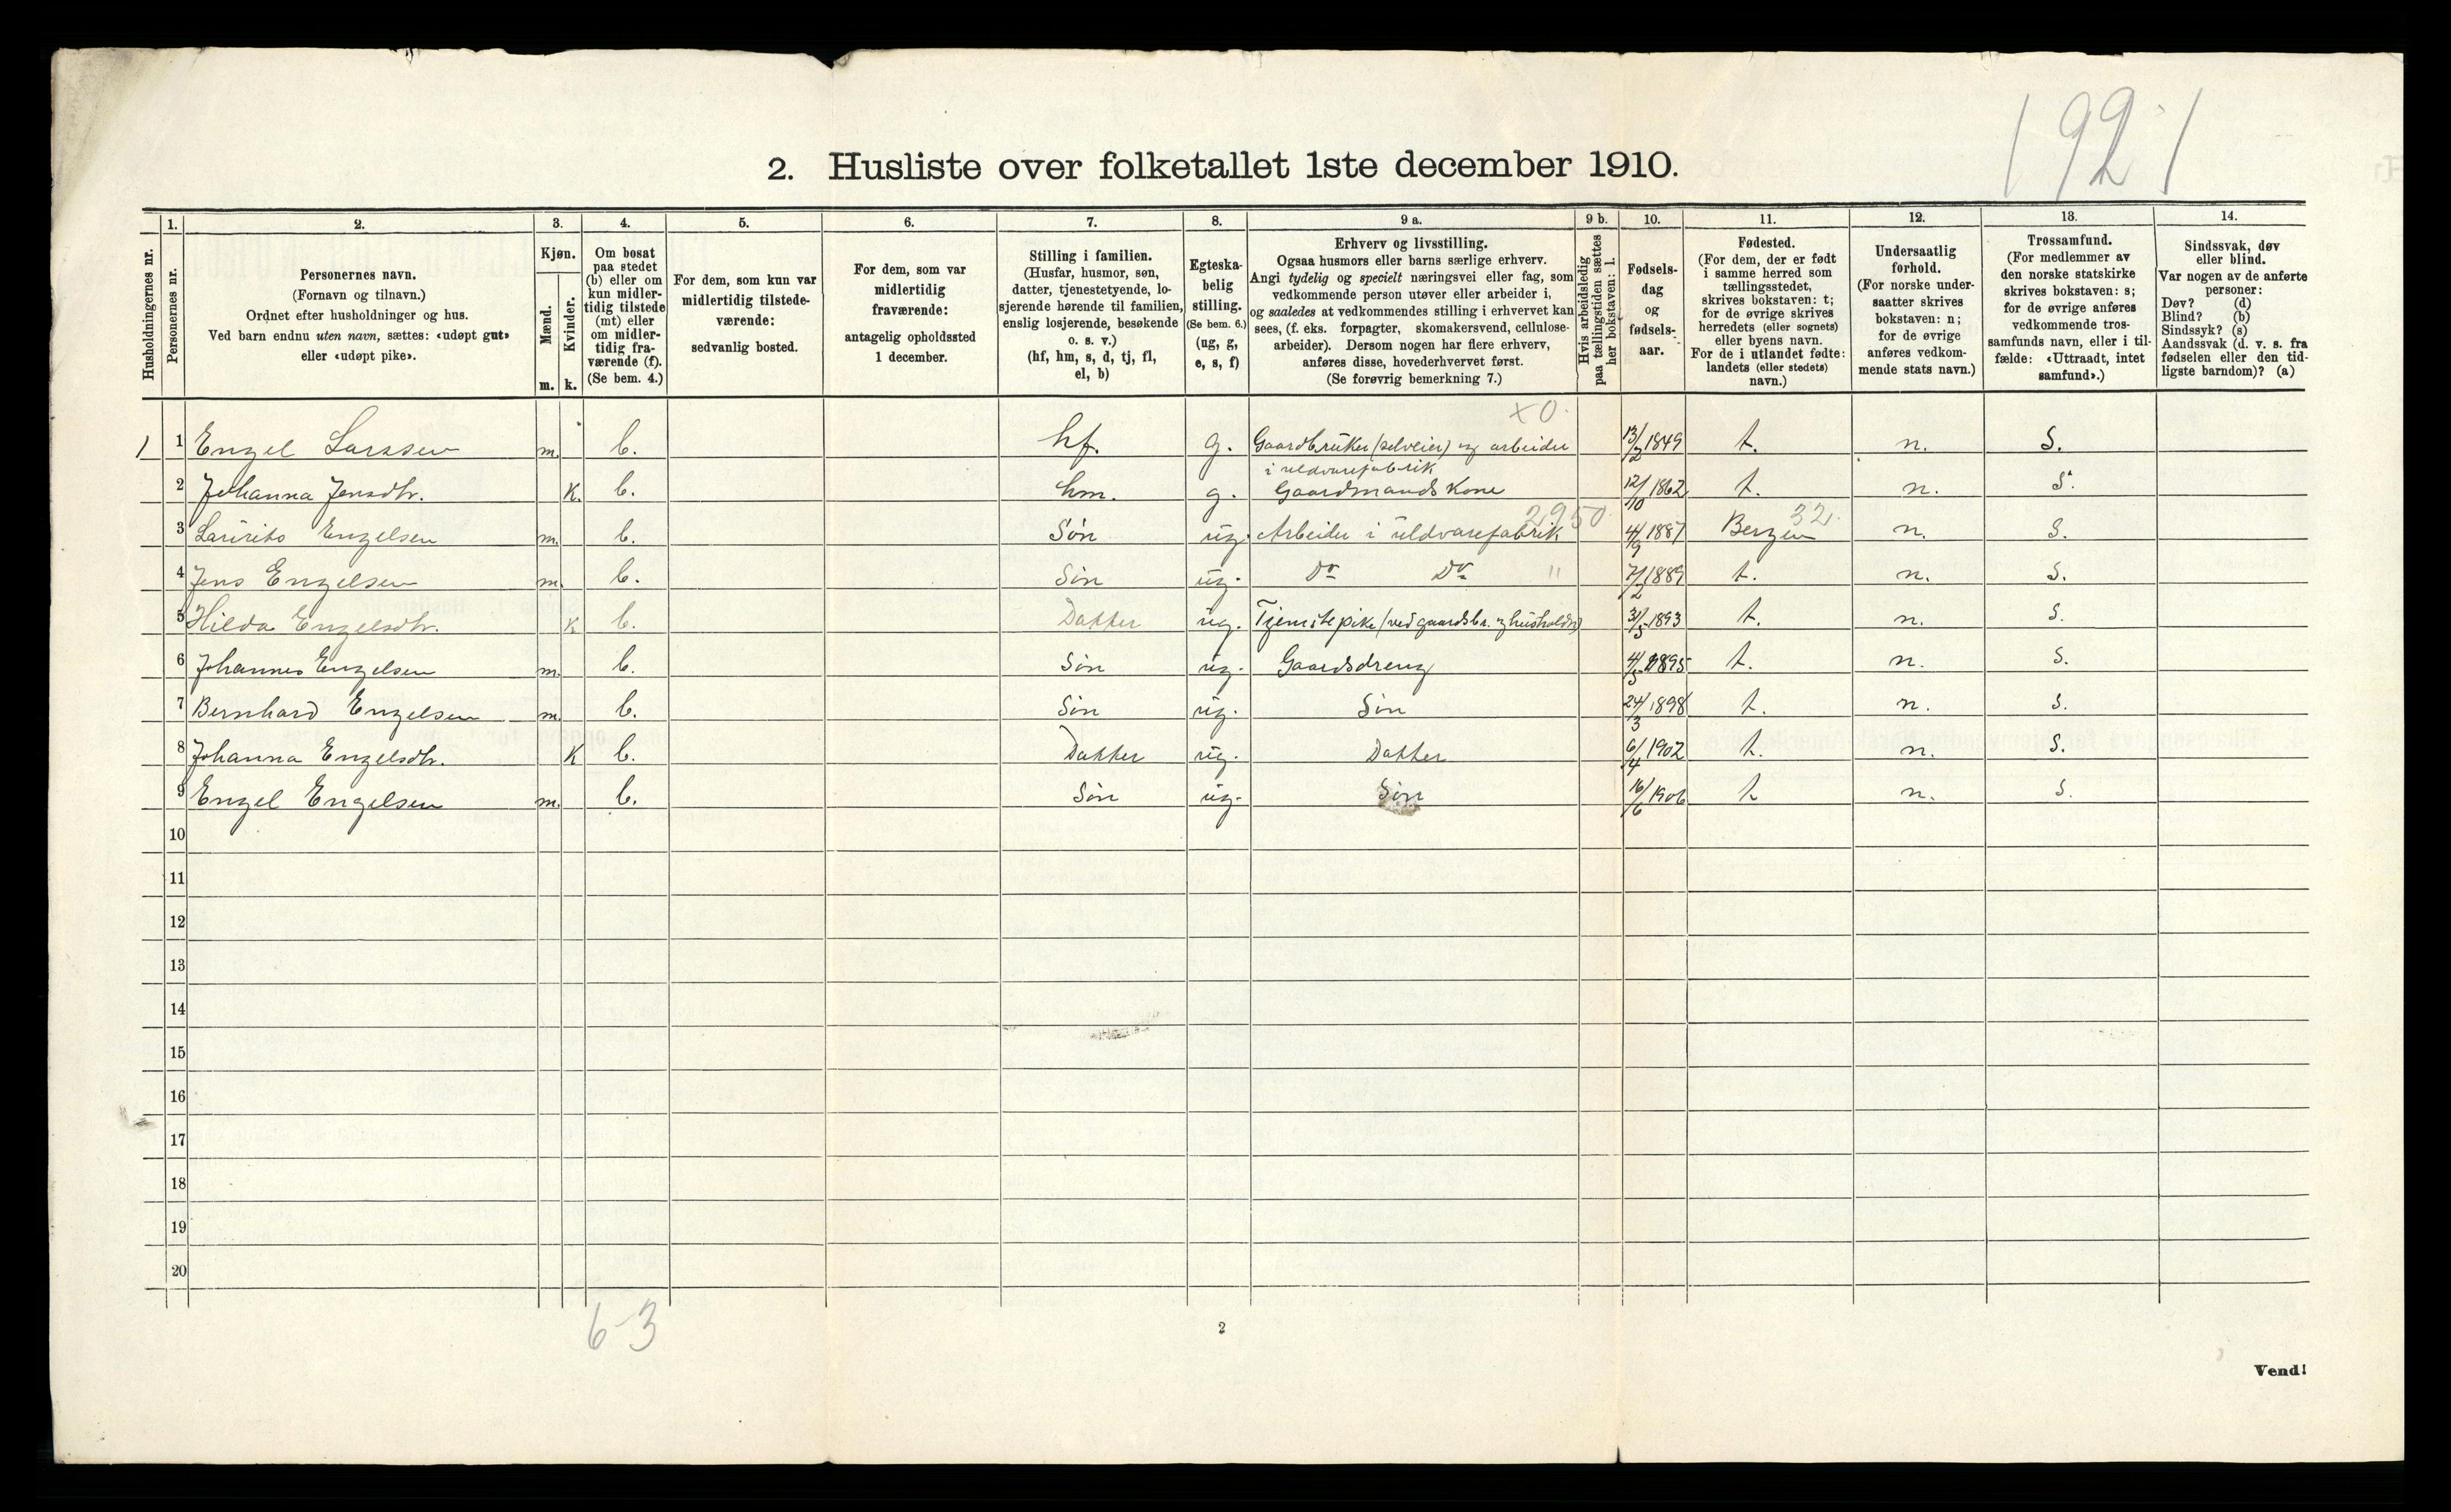 1921
2. Husliste over folketallet 1ste december 1910.
Husholdningernes nr.
1. Personernes nr.
2. Personernes navn.
(Fornavn og tilnavn.)
Ordnet efter husholdninger og hus.
Ved barn endnu uten navn, sættes: «udøpt gut»
eller «udøpt pike».
3. Kjøn.
Mænd. m.
Kvinder. k.
4. Om bosat
paa stedet
(b) eller om
kun midler-
tidig tilstede
(mt) eller
om midler-
tidig fra-
værende (f).
(Se bem. 4.)
5. For dem, som kun var
midlertidig tilstede-
værende:
sedvanlig bosted.
6. For dem, som var
midlertidig
fraværende:
antagelig opholdssted
1 december.
7. Stilling i familien.
(Husfar, husmor, søn,
datter, tjenestetyende, lo-
sjerende hørende til familien,
enslig losjerende, besøkende
o. s. v.)
(hf, hm, s, d, tj, fl,
el, b)
8. Egteska-
belig
stilling.
(Se bem. 6.)
(ug, g,
e, s, f)
9 a. Erhverv og livsstilling.
Ogsaa husmors eller barns særlige erhverv.
Angi tydelig og specielt næringsvei eller fag, som
vedkommende person utøver eller arbeider i,
og saaledes at vedkommendes stilling i erhvervet kan
sees, (f. eks. forpagter, skomakersvend, cellulose-
arbeider). Dersom nogen har flere erhverv,
anføres disse, hovederhvervet først.
(Se forøvrig bemerkning 7.)
9 b. Hvis arbeidsledig
paa tællingstiden sættes
her bokstaven: l.
10. Fødsels-
dag
og
fødsels-
aar.
11. Fødested.
(For dem, der er født
i samme herred som
tællingsstedet,
skrives bokstaven: t;
for de øvrige skrives
herredets (eller sognets)
eller byens navn.
For de i utlandet fødte:
landets (eller stedets)
navn.)
12. Undersaatlig
forhold.
(For norske under-
saatter skrives
bokstaven: n;
for de øvrige
anføres vedkom-
mende stats navn.)
13. Trossamfund.
(For medlemmer av
den norske statskirke
skrives bokstaven: s;
for de øvrige anføres
vedkommende tros-
samfunds navn, eller i til-
fælde: «Uttraadt, intet
samfund».)
14. Sindssvak, døv
eller blind.
Var nogen av de anførte
personer:
Døv? (d)
Blind? (b)
Sindssyk? (s)
Aandssvak (d. v. s. fra
fødselen eller den tid-
ligste barndom)? (a)
x 0.
1 1 Engel Larssen m. b. hf. g. Gaardbruker (selveier) og arbeider 13/2 1849 t. n. S.
i uldvarefabrik
2 Johanna Jensdtr. K. b. hm. g. Gaardmands Kone 12/10 1862 t. n. S.
2950. 32.
3 Lauritz Engelsen m. b. Søn ug. Arbeider i uldvarefabrik 4/9 1887 Bergen n. S.
4 Jens Engelsen m. b. Søn ug. Do Do " 7/2 1889 t. n. S.
5 Hilda Engelsdtr. K b. Datter ug. Tjenstepike (ved gaardsbr. og husholdn) 31/5 1893 t. n. S.
6 Johannes Engelsen m. b. Søn ug. Gaardsdreng 4/5 1895 t. n. S.
7 Bernhard Engelsen m. b. Søn ug. Søn 24/3 1898 t. n. S.
8 Johanna Engelsdtr. K b. Datter ug. Datter 6/4 1902 t. n. S.
9 Engel Engelsen m. b. Søn ug. Søn 16/6 1906 t n. S.
10
11
12
13
14
15
16
17
18
19
20
6-3
2
Vend!